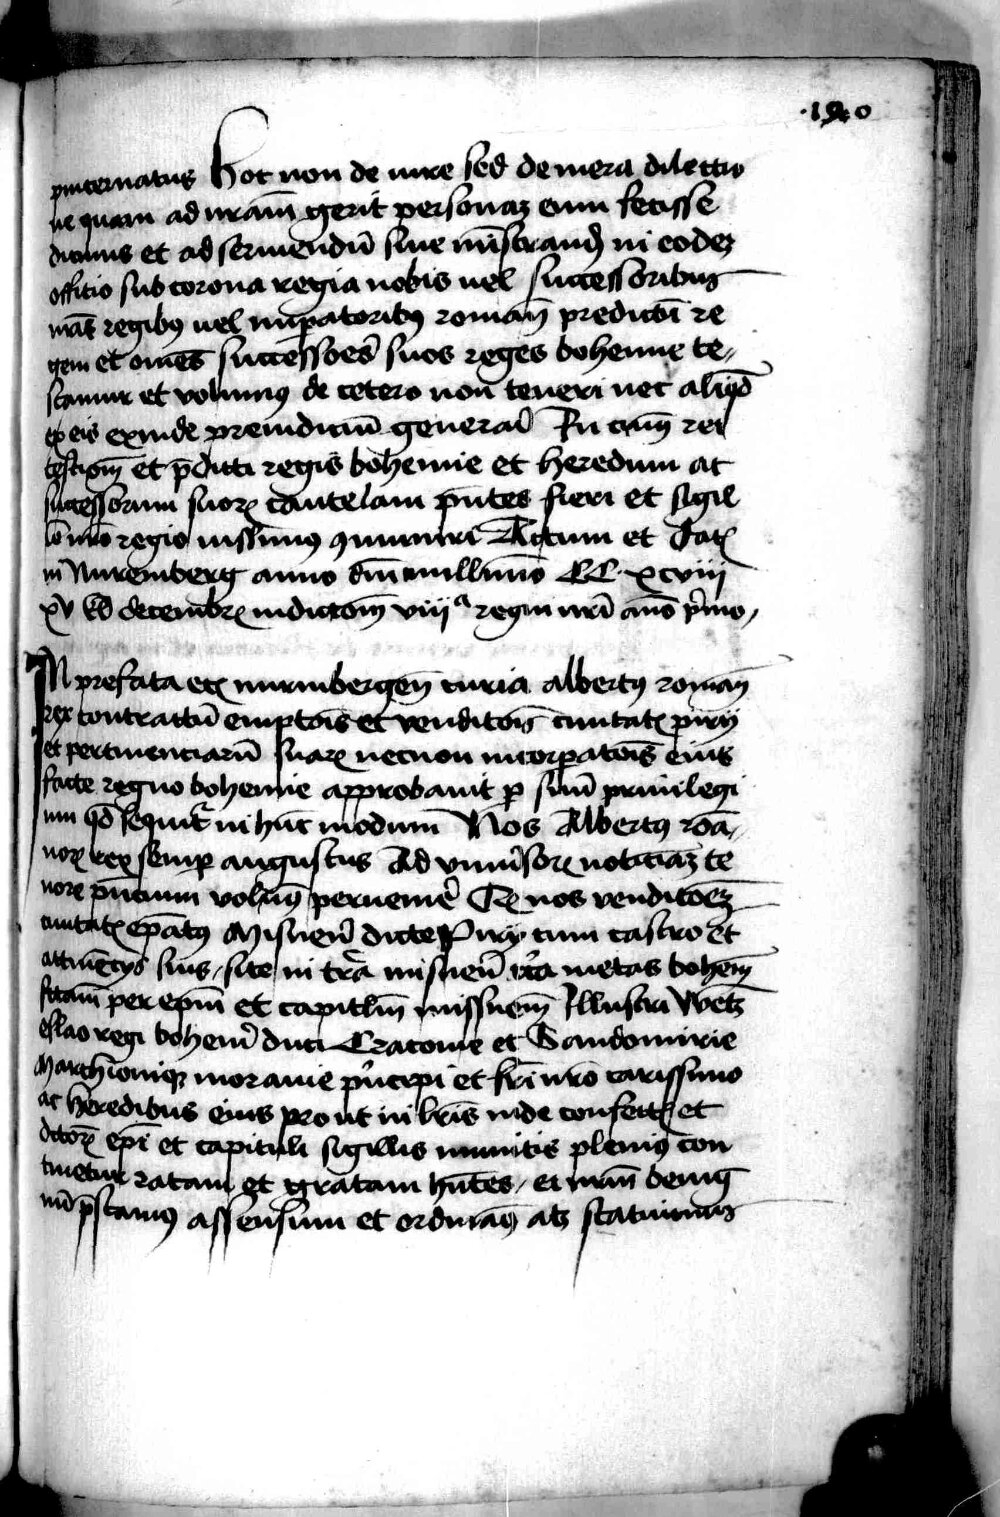 ·190
pincernatus Hoc non de iure sed de mera dilectio
ne quam ad nram̄ gerit personaz eum fecisse
dicimus et ad seruiendū siue mīstrand̄ in eodez
officio sub corona regia nobis uel successoribus
nr̄is regibus uel imperatoribus romanoꝝ predictū re
gem et omēs successoēs suos reges bohemie te„
stamur et volumus de cetero non teneri nec aliqd̄
ex eis exinde preiudiciū generari In cuius rei
testiom̄ et p̄dicti regis bohemie et heredum ac
successorum suoꝝ cautelam p̄ntes fieri et sigil
lo nr̄o regio iussimus 9muniri Actum et Datꝝ
in Nuremberg anno dn̄i millimo CC xcviii
xv kl̄ decembrꝝ indictom̄ viiiᵃ regni nrī an̄o p̄mo,
In prefata etꝝ nurmbergen̄ curia albertus roman̄
rex contractū emptoīs et venditoīs ciuitatꝝ pirn
et pertinenciarū suaꝝ necnon incorꝑatoīs eius
facte regno bohemie approbauit ꝑ suū priuilegi
um qd̄ sequitr̄ in hūc modum Nos Albertus roā„
noꝝ rex semꝑ augustus Ad vniūsoꝝ noticiaz te
nore p̄ncium volum9 peruenire Qꝫ nos vendicoēz
ciuitatꝝ ep̄atus Misnen̄ dicte Pirn cum castro et
attinēcijs suis, site in tr̄a misnen̄ metas bohem̄
fctam̄ per ep̄m et capitlm̄ missnen̄ Illustri Wetz
eslao regi bohem̄ duci Cracouie et Sandomirie
Marchioniqꝫ morauie p̄ncipi et fr̄i nr̄o carissimo
ac heredibus eius prout in lrīs inde confectꝝ et
dcōꝝ ep̄i et capituli sigillis munitis plenius con
tinetur ratam et gratam hn̄tes, ei nrm̄ benig
nū p̄stamus assensum et ordinam9 atqꝫ statuimus